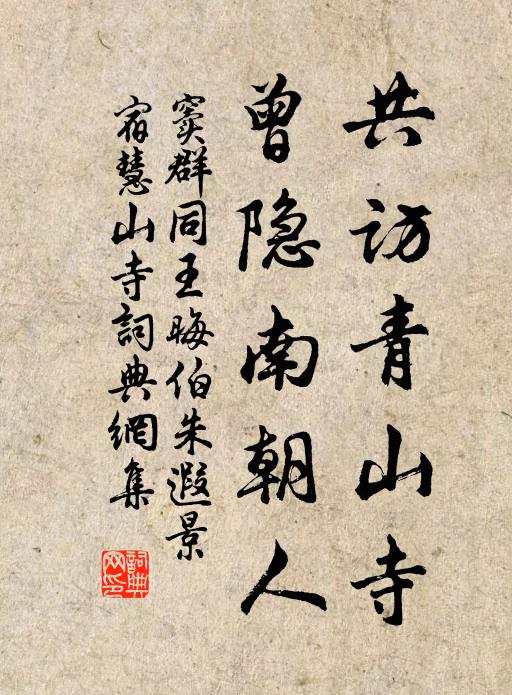 共访青山寺
曾隐南朝人
窦群同王晦伯朱遐景
宿慧山寺詞典網集
詞典
网印